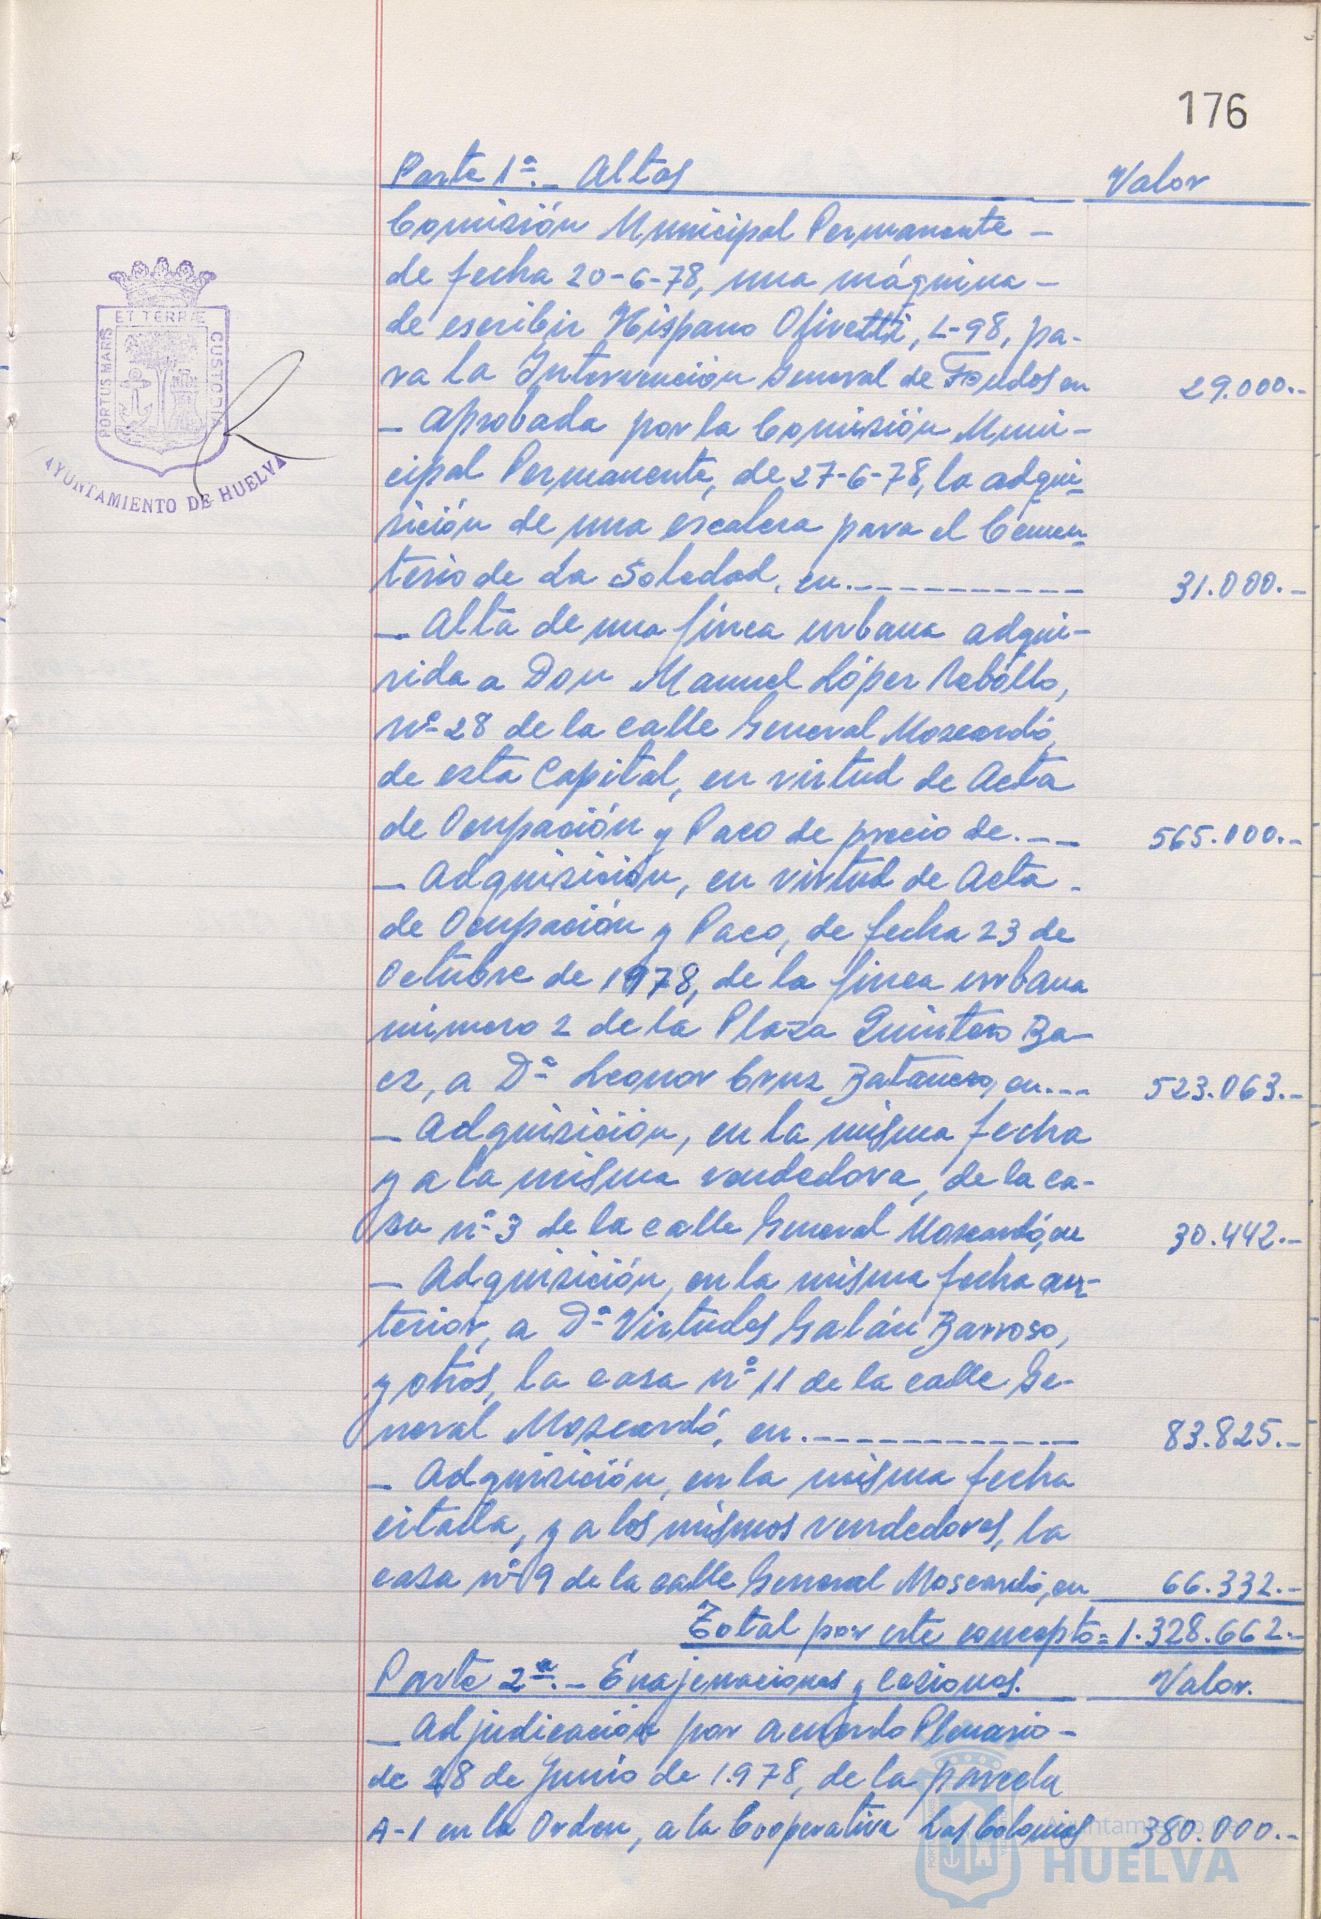 176
Parte 1ª.- Altas Valor
Comisión Municipal Permanente -
de fecha 20-6-78, una máquina -
de escribir Hispano Olivetti, L-98, pa-
ra la Intervención General de Fondos en 29.000.-
- Aprobada por la Comisión Muni-
cipal Permanente, de 27-6-78, la adqui-
sición de una escalera para el Cemen-
terio de La Soledad, en.---------- 31.000.-
- Alta de una finca urbana adqui-
rida a Don Manuel López Rebollo,
nº 28 de la calle General Moscardó,
de esta Capital, en virtud de Acta
de Ocupación y Paco de precio de.--- 565.000.-
- Adquisición, en virtud de Acta -
de Ocupación y Paco, de fecha 23 de
Octubre de 1978, de la finca urbana
número 2 de la Plaza Quintero Ba-
ez, a Dª Leonor Cruz Batanero, en.--- 523.063.-
- Adquisición, en la misma fecha
y a la misma vendedora, de la ca-
sa nº 3 de la calle General Moscardó, en 30.442.-
- Adquisición, en la misma fecha an-
terior, a Dª Virtudes Galán Barroso,
y otros, la casa nº 11 de la calle Ge-
neral Moscardó, en.------------ 83.825.-
- Adquisición, en la misma fecha
citada, y a los mismos vendedores, la
casa nº 9 de la calle General Moscardó, en 66.332.-
Total por este concepto= 1.328.662.-
Parte 2ª.- Enajenaciones y cesiones. Valor.
- Adjudicación por acuerdo Plenario -
de 28 de Junio de 1.978, de la parcela
A-1 en la Orden, a la Cooperativa Las Colonias 380.000.-
ET TERRÆ
PORTUS MARIS
CUSTODIA
AYUNTAMIENTO DE HUELVA
Ayuntamiento de
HUELVA